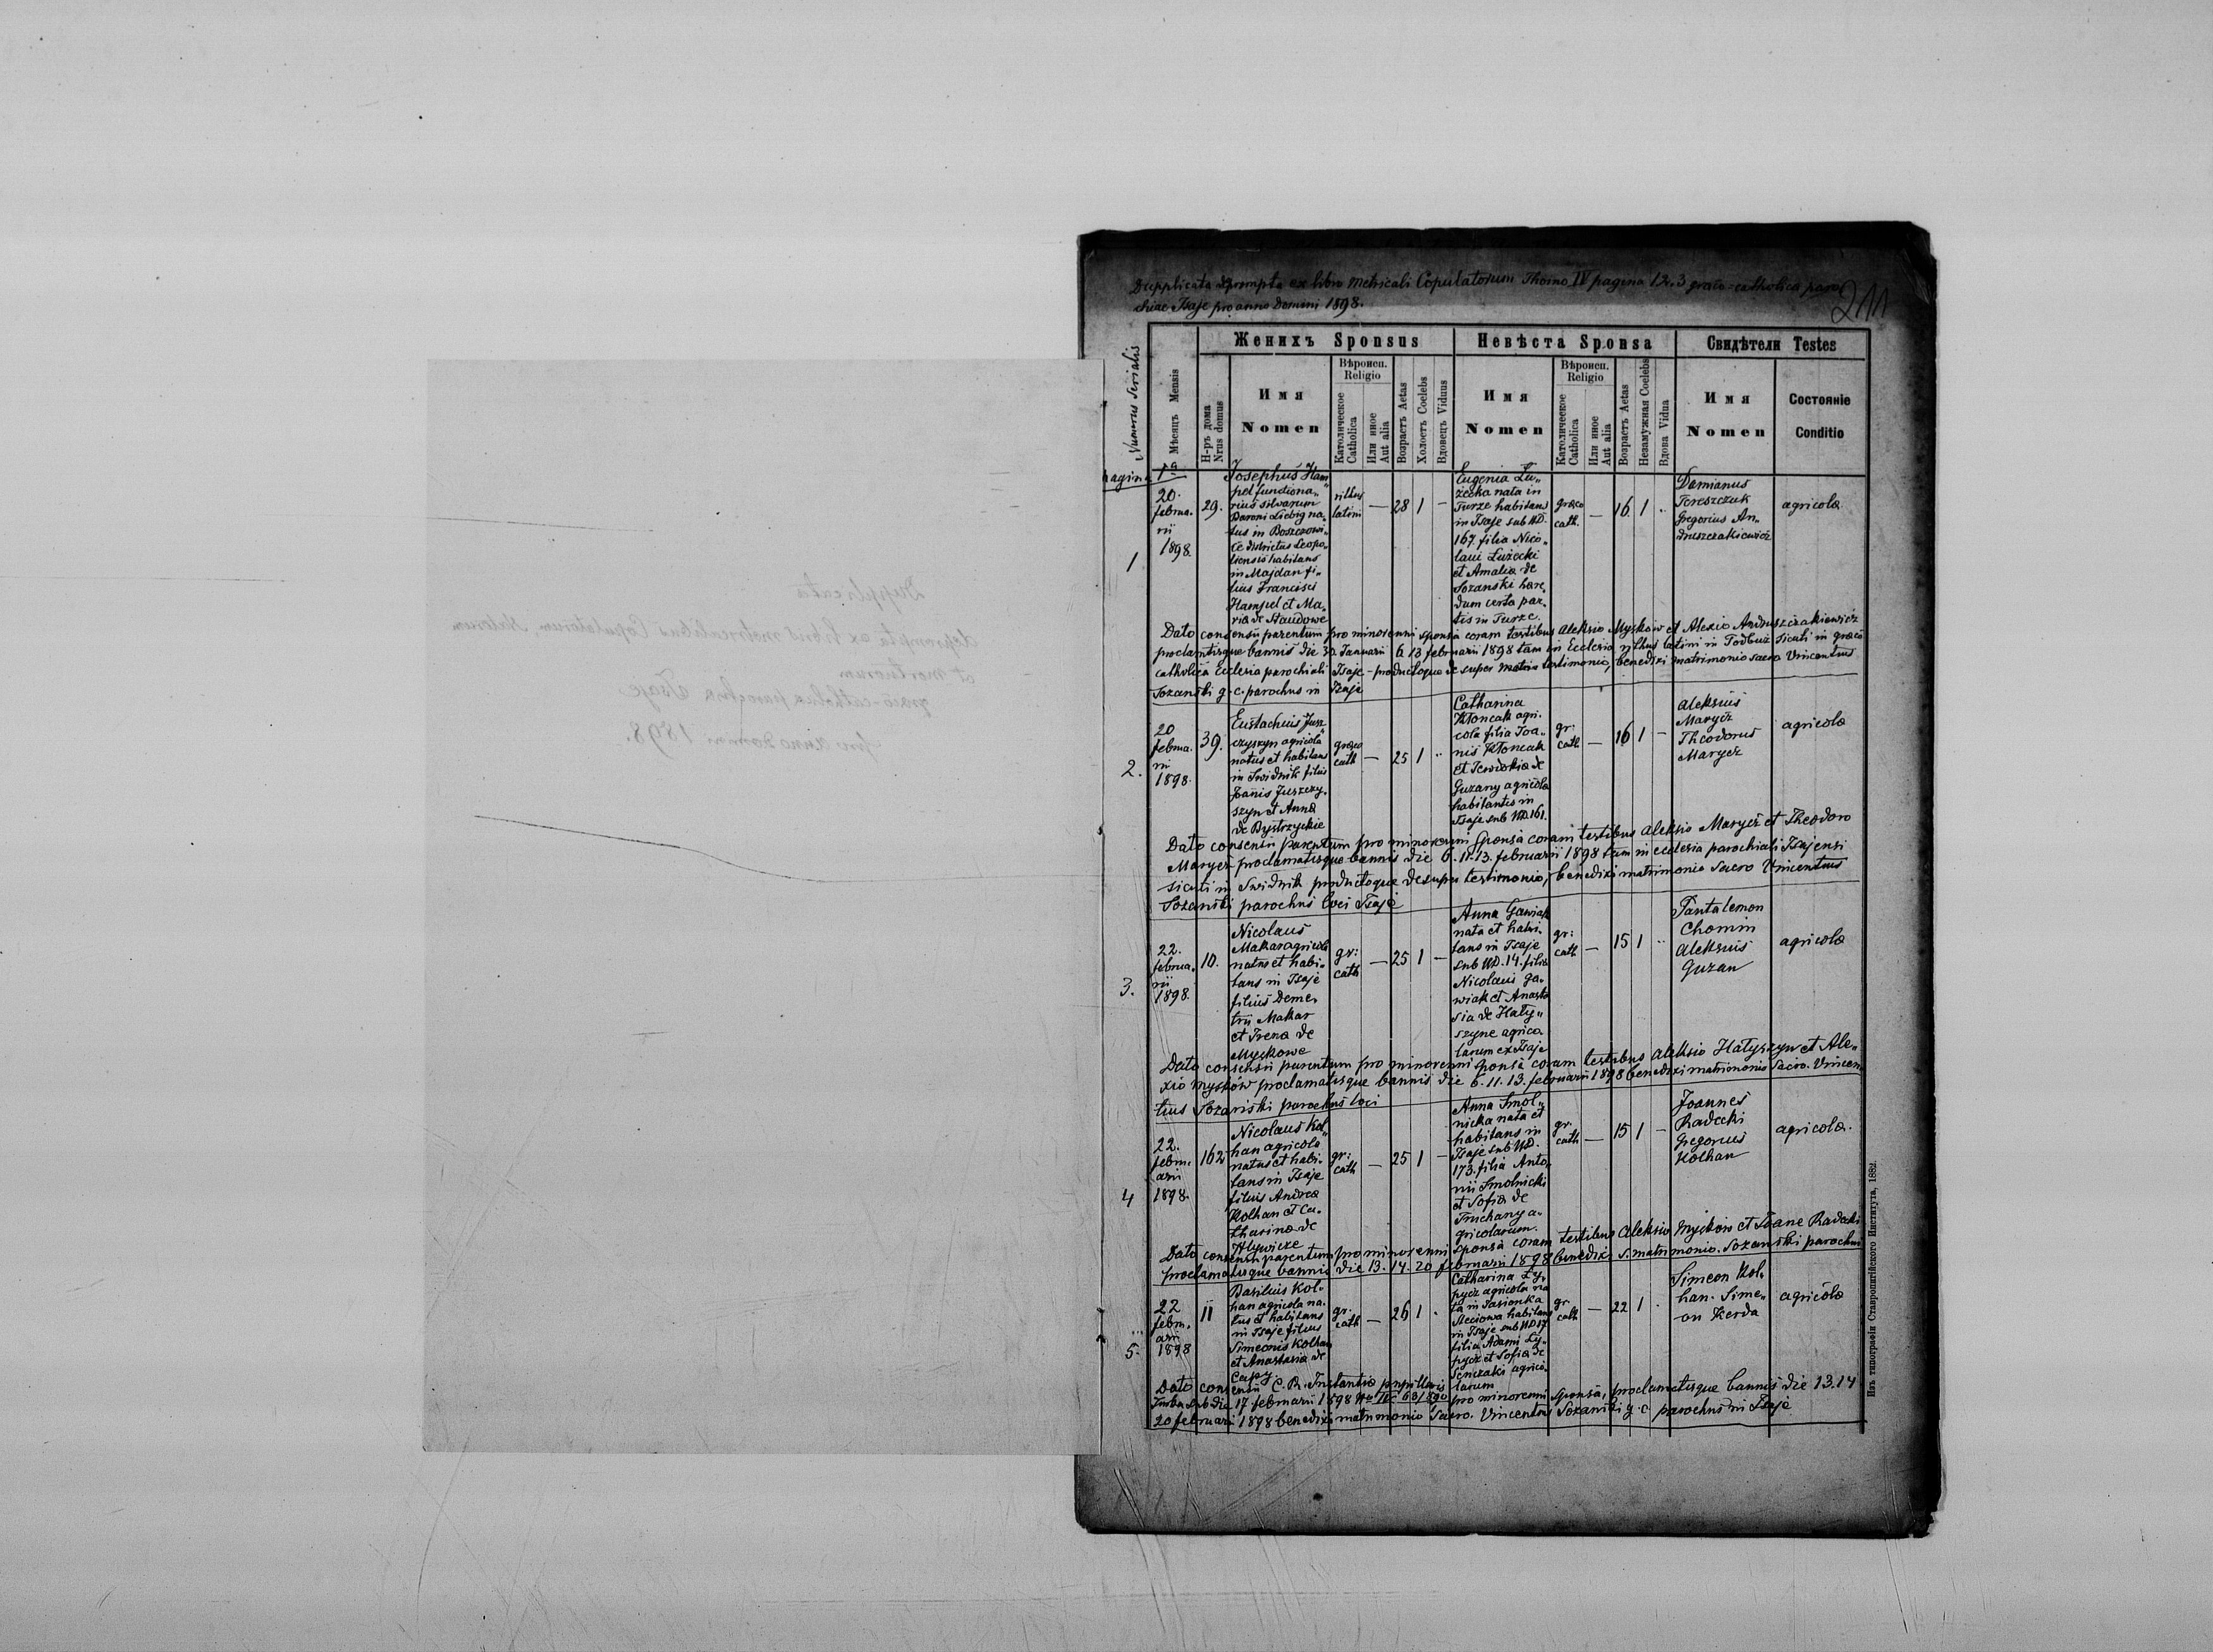 Dupplicata deprompta ex libro metricali Copulatorum Thomo IV pagina 1.2.3 graeco-catholica paro
chiae Isaje pro anno Domini 1898.
211
Numerus serialis
Мѣсяцъ Mensis
Женихъ Sponsus
Невѣста Sponsa
Свидѣтели Testes
Н-ръ дома
Nrus domus
Имя
Nomen
Вѣроисп.
Religio
Католическое
Catholica
Или иное
Aut alia
Возрастъ Aetas
Холостъ Coelebs
Вдовецъ Viduus
Имя
Nomen
Вѣроисп.
Religio
Католическое
Catholica
Или иное
Aut alia
Возрастъ Aetas
Незамужная Coelebs
Вдова Vidua
Имя
Nomen
Состояніе
Conditio
pagina 1ª
1
20.
februa.
rii
1898.
29.
Josephus Ham„
pel functiona„
rius silvarum
Baroni Liebig na„
tus in
ce districtus Leopo„
liensis habitans
in Majdan fi„
lius Francisci
Hampel et Ma„
ria de Staudowe
ritus
latini
—
28
1
—
Eugenia Lu„
żecka nata in
Turze habitans
in Isaje sub ND.
167 filia Nico„
laui Lużecki
et Amalia de
Sozanski hære„
dum certa par„
tis in Turze.
græco
cath.
—
16
1
Damianus
Tereszczuk
Gregorius An„
druszczakiewicz
agricola
Dato consensu parentum pro minorenni sponsa coram testibus Aleksio Myskow et Alexio Andruszczakiewicz
proclamatisque bannis die 30. Januarii 6 13 februarii 1898 tam in Ecclesia ritus latini in Podbuz sicuti in græco
catholica Ecclesia parochiali Isaje - productoque desuper testimonio, benedixi matrimonio sacro Vincentius
Sozański g. c. parochus in Isaje
2.
20
februa.
rii
1898.
39.
Eustachius Jusz
czyszyn agricola
natus et habitans
in Swidnik filius
Joannis Juszczy„
szyn et Anna
de Bystrzyckie
græco
cath
—
25
1
Catharina
Kłoncak agri„
cola filia Joa„
nis Kłoncak
et Tewdokia de
Guzany agricola
habitantis in
Isaje sub ND.161.
gr.
cath
—
16
1
—
Aleksius
Marycz
Theodorus
Marycz
agricola
Dato consensu parentum pro minorenni sponsa coram testibus Aleksio Marycz et Theodoro
Marycz proclamatisque bannis die 6. 11. 13. februarii 1898 tam in ecclesia parochiali Isajensi
sicuti in Swidnik productoque desuper testimonio, benedixi matrimonio Sacro Vincentius
Sozański parochus loci Isaje
3.
22.
februa.
rii
1898.
10.
Nicolaus
Makar agricola
natus et habi„
tans in Isaje
filius Deme„
trii Makar
et Irena de
Myckowe
gr:
cath
—
25
1
—
Anna Gawiak
nata et habi„
tans in Isaje
sub ND. 14. filia
Nicolaui Ga„
wiak et Anasta
sia de Hały„
szyne agrico„
larum ex Isaje
gr:
cath
—
15
1
Pantalemon
Chomin
Aleksius
Guzan
agricola
Dato consensu parentum pro minorenni sponsa coram testibus Aleksio Hałyszyn et Ale„
xio Myskow proclamatisque bannis die 6. 11. 13. februarii 1898 benedixi matrimonio Sacro. Vincen
tius Sozański parochus loci
4
22.
febru.
arii
1898.
162
Nicolaus Kol„
han agricola
natus et habi„
tans in Isaje
filius Andrea
Kolhan et Ca„
tharina de
Hływicze
gr:
cath
—
25
1
—
Anna Smol„
nicka nata et
habitans in
Isaje sub ND.
173. filia Anto„
nii Smolnicki
et Sofia de
Truchany a„
gricolarum.
gr.
cath
—
15
1
—
Joannes
Radecki
Gregorius
Kolhan
agricola.
Dato consensu parentum pro minorenni sponsa coram testibus Aleksio Myckow et Joane Radecki
proclamatisque bannis die 13. 14. 20 februarii 1898 benedixi S. matrimonio. Sozański parochus
5.
22
febru.
arii
1898
11
Basilius Kol„
han agricola na„
tus et habitans
in Isaje filius
Simeonis Kolhan
et Anastasia de
Capy
gr.
cath
—
26
1
Catharina Ły„
pycz agricola na
ta in Jasionka
Steciowa habitans
in Isaje sub ND 17
filia Adami Ły„
pycz et Sofia de
Senczaki agrico„
larum
gr.
cath
—
22
1
Simeon Kol„
han. Sime„
on Kerda
agricola
Dato consensu C. R. Instantia pupillaris
Turka sub die 17 februarii 1898 No IV 63/890 pro minorenni sponsa, proclamatisque bannis die 13.14
20 februarii 1898 benedixi matrimonio Sacro. Vincentius Sozański g. c. parochus in Isaje
Изъ типографіи Ставропигійского Института, 1882.
Dupplicata
deprompta ex libris metricalibus Copulatorum, Natorum
et mortuorum
græco-catholica parochia Isaje
pro anno Domini 1898.